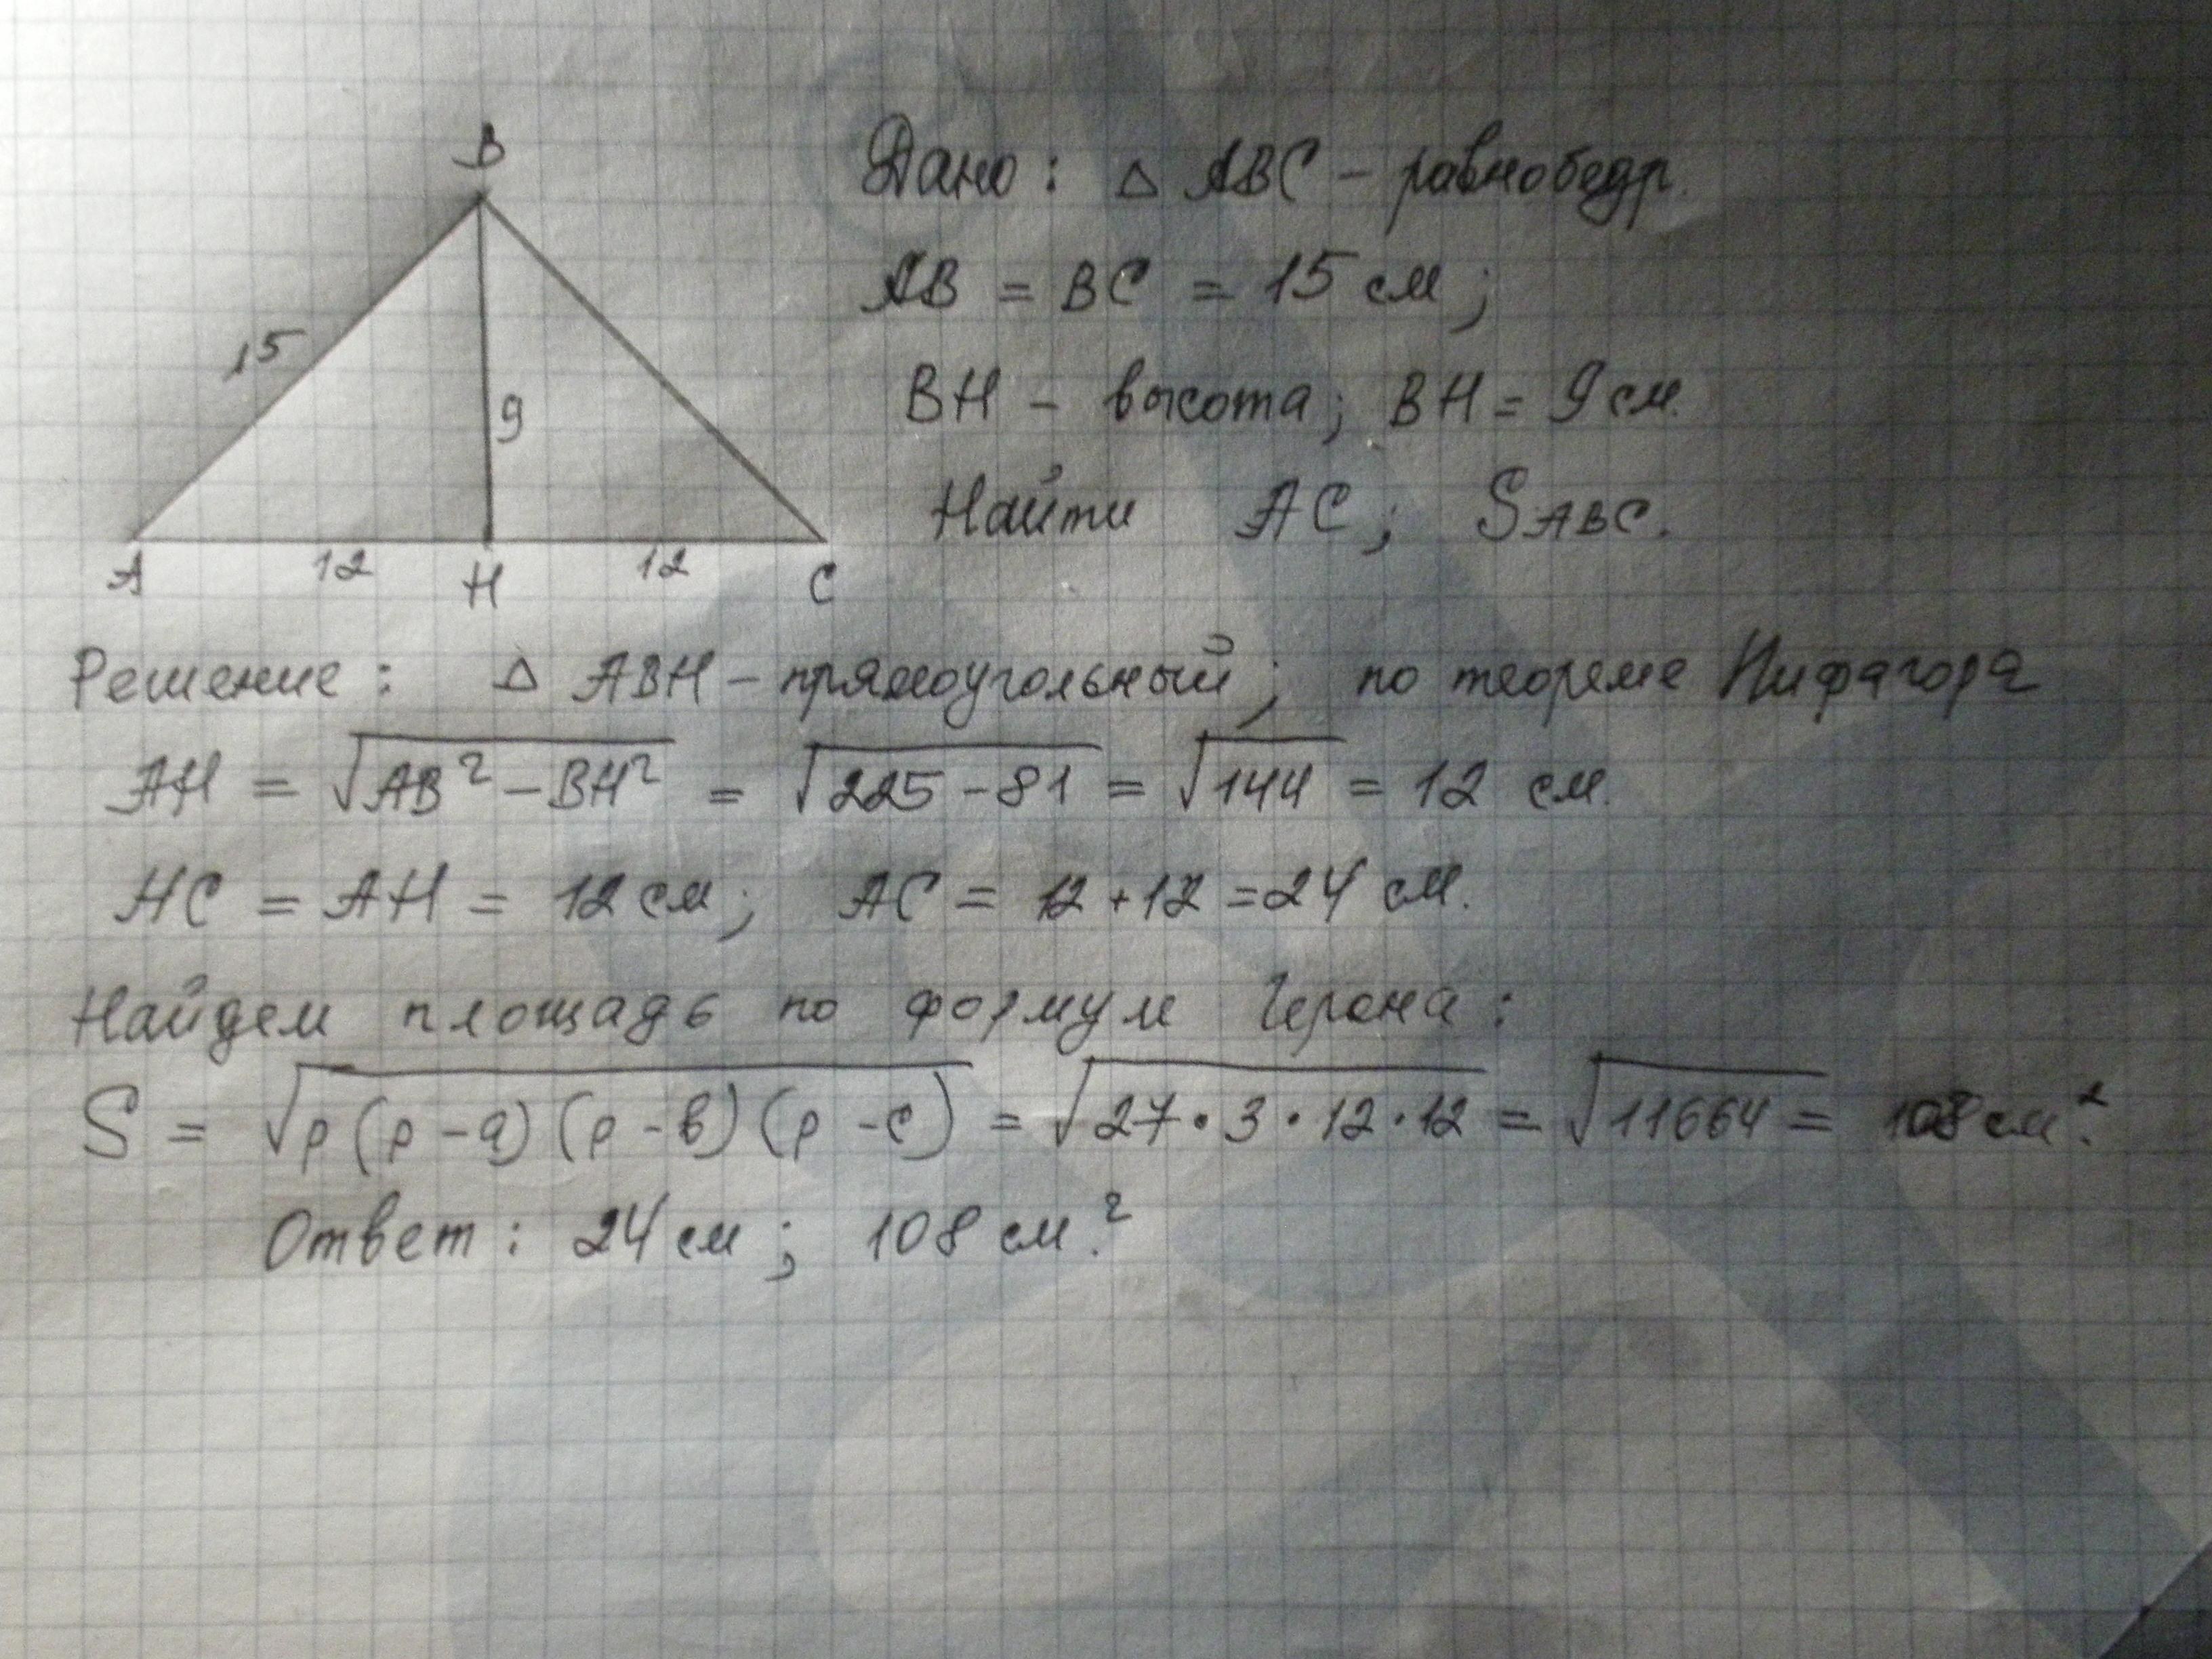 B
Дано: △ ABC – равнобедр.
AB = BC = 15 см;
15
BH – высота; BH = 9 см.
9
Найти AC; SABC.
A 12 H 12 C
Решение: △ ABH – прямоугольный; по теореме Пифагора
AH = √AB² – BH² = √225 – 81 = √144 = 12 см.
HC = AH = 12 см; AC = 12 + 12 = 24 см.
Найдем площадь по формуле Герона:
S = √p (p – a) (p – в) (p – c) = √27 • 3 • 12 • 12 = √11664 = 108 см².
Ответ: 24 см; 108 см.²